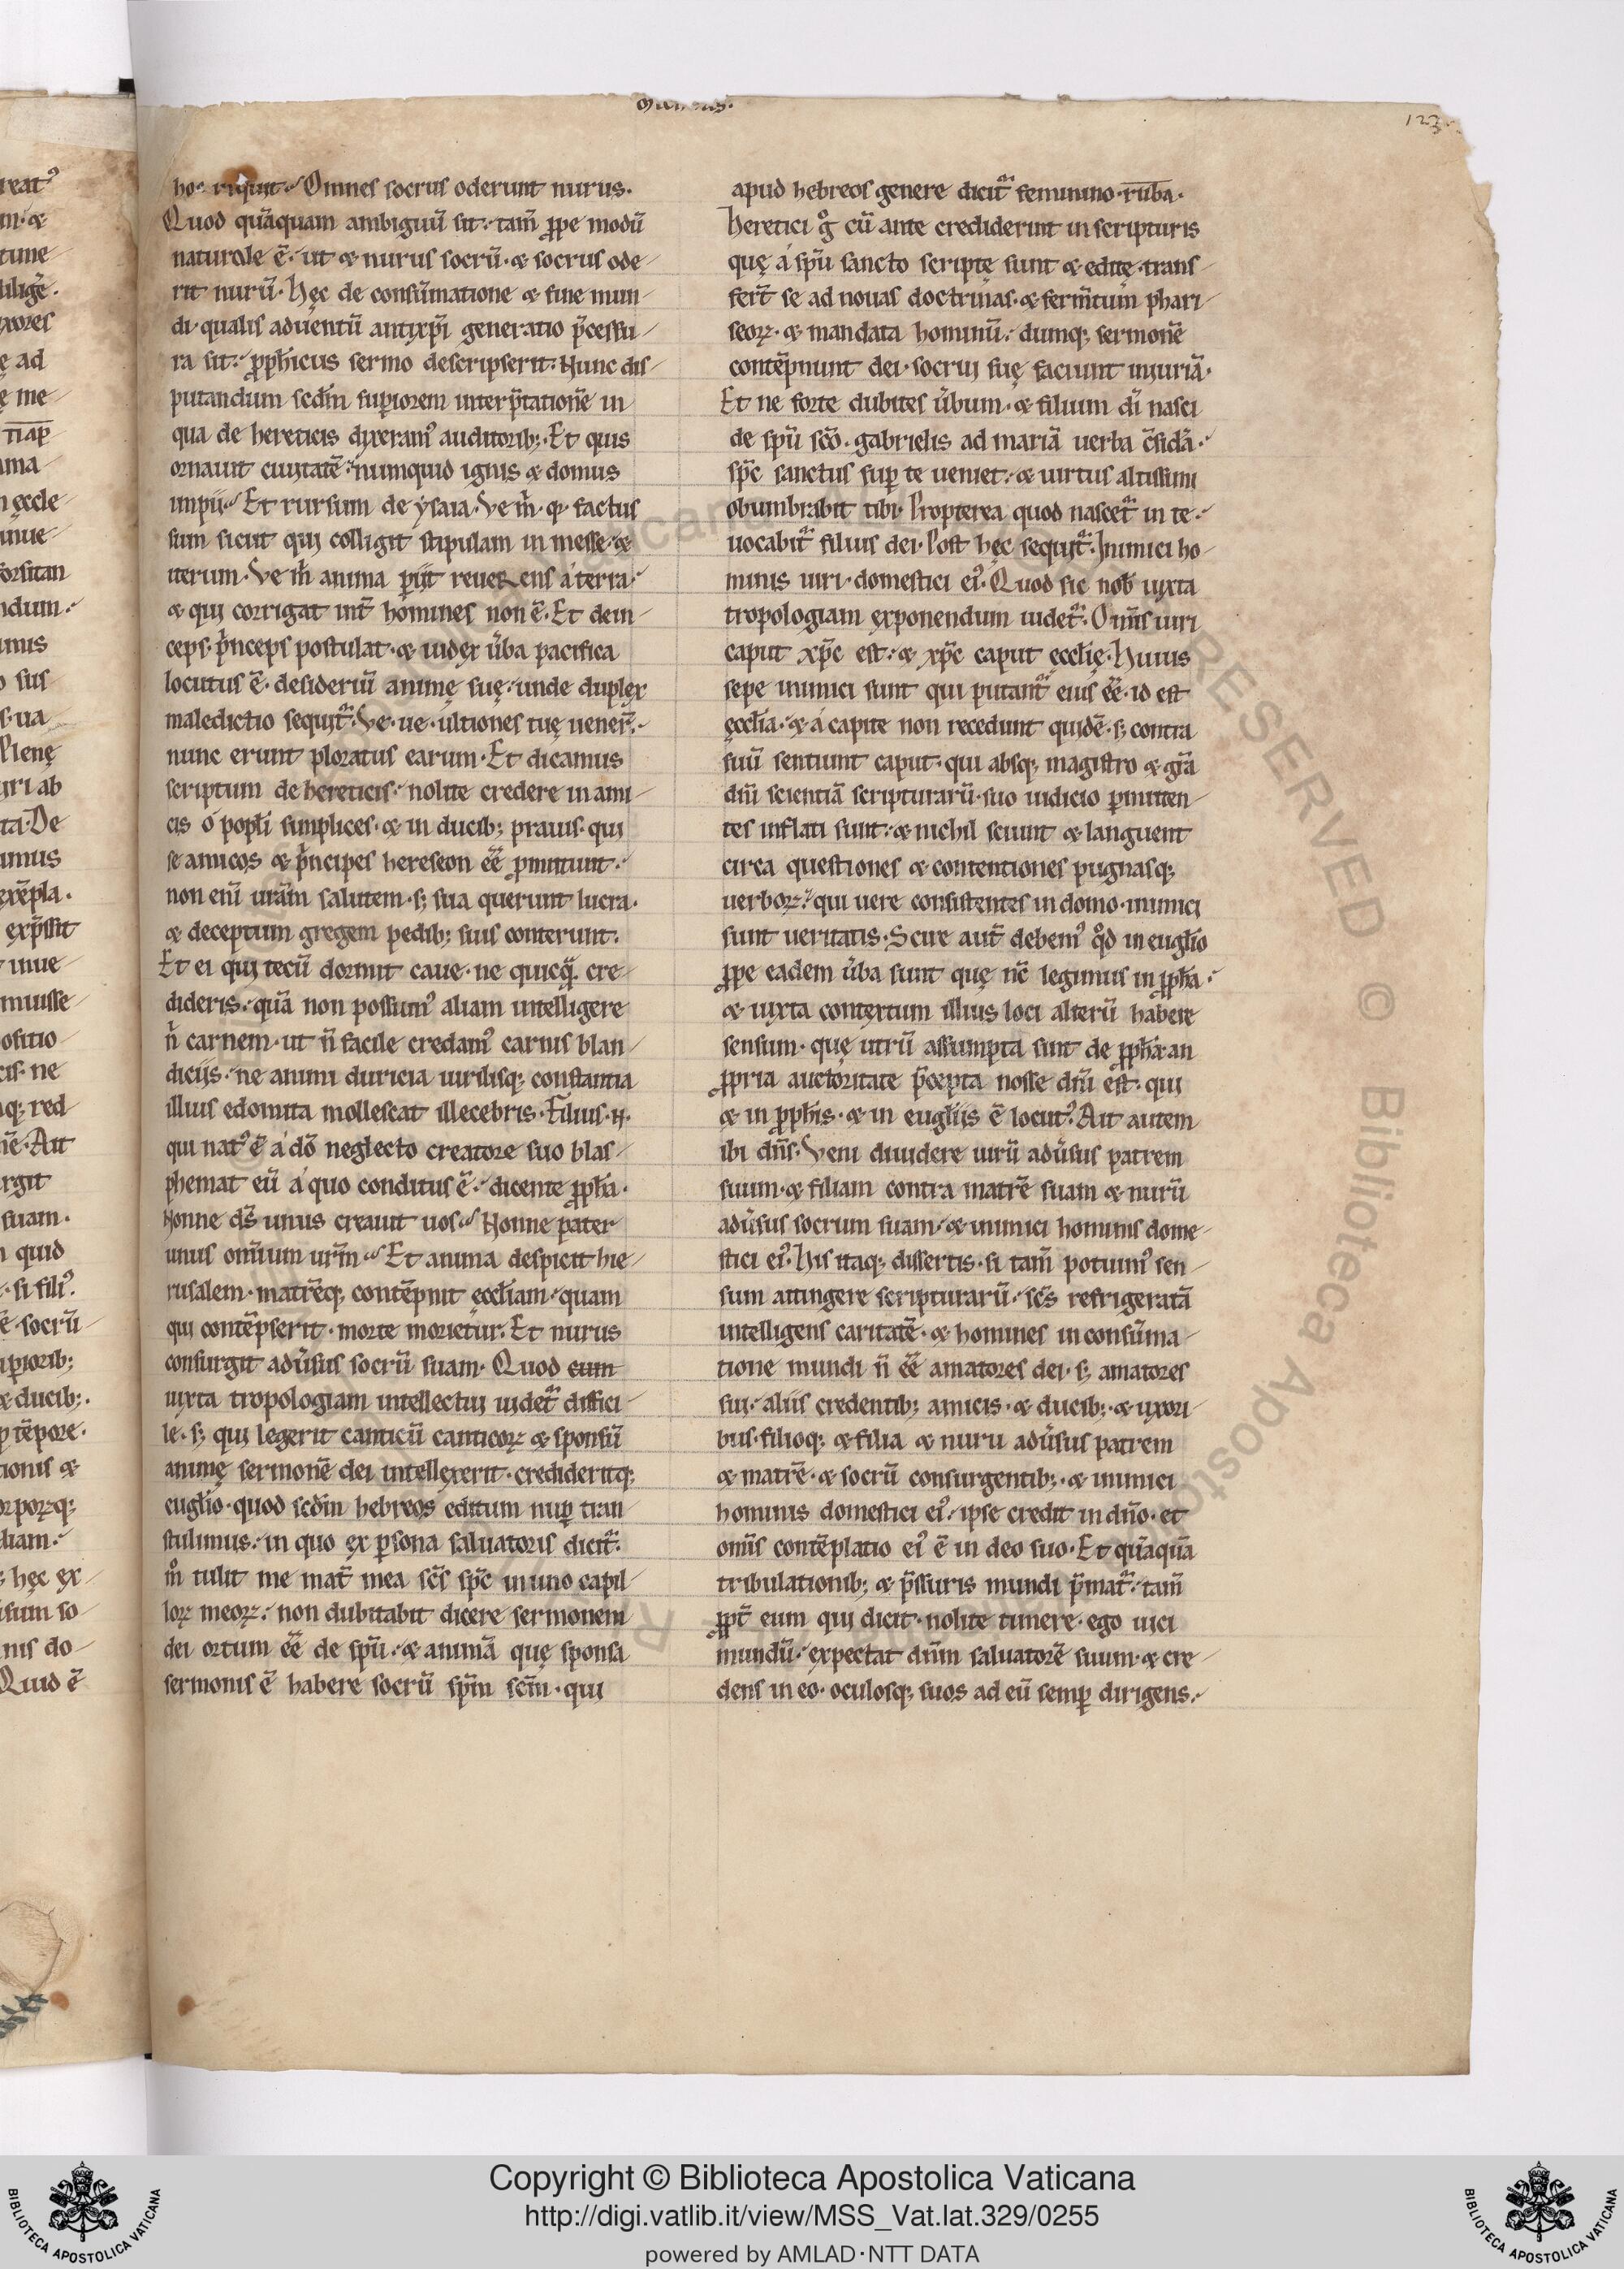 123
Omnes socrus oderunt nurus.
Quod quāquam ambiguū sit: tam̄ ꝓpe modū
naturale ē. ut & nurus socrū. & socrus ode-
rit nurū. Hęc de consūmatione & fine mun-
di. qualis aduentū antixp̄i generatio p̄cessu-
ra sit: ꝓph̄icus sermo descripserit. Nunc dis-
putandum scd̄m supiorem interp̄tationē in
qua de hereticis dixeramꝰ auditorib;. Et quis
ornauit cuitatē: numquid ignis & domus
impii. Et rursum de ysaia. Ve m̄. q. factus
sum sicut qui colligit stipulam in messe. &
iterum. Ve m̄ anima ꝑiit reuerens á terra.
& qui corrigat int̄ homines non ē. Et dein-
ceps. p̄nceps postulat. & iudex ūba pacifica
locutus ē. desideriū animę suę. unde duplex
maledictio sequit̄. Ve. ue. ultiones tuę uener̄.
nunc erunt ploratus earum. Et dicamus
scriptum de hereticis. nolite credere in ami-
cis ó popl̄i simplices. & in ducib; prauis. qui
se amicos & p̄ncipes hereseon eē̄ ꝓmittunt.
non eni̅ uram̄ salutem. s; sua querunt lucra.
& deceptum gregem pedib; suis conterunt.
Et ei qui tecū dormit caue. ne quicq̄. cre-
dideris. quā non possumꝰ aliam intelligere
n̄ carnem. ut n̄ facile credamꝰ carnis blan-
diciis. ne animi duricia uirilisq; constantia
illius edomita mollescat illecebris. Filius. n.
qui natꝰ ē á dō neglecto creatore suo blas-
phemat eū á quo conditus ē. dicente ꝓph̄a.
Nonne ds̄ unus creauit uos. Nonne pater
unus omīum urm̄. Et anima despicit hie-
rusalem. matrēq; contēpnit ęccl̄iam. quam
qui contēpserit. morte morietur. Et nurus
consurgit adūsus socrū suam. Quod cum
iuxta tropologiam intellectui uidet̄ diffici-
le. s; qui legerit canticū canticoꝝ & sponsū
animę sermonē dei intellexerit. credideritq;
eugl̄io. quod scd̄m hebreos editum nuꝑ tran-
stulimus. in quo ex ꝑsona saluatoris dicit̄.
m̊ tulit me mat̄ mea scs̄ spc̄ in uno capil-
loꝝ meoꝝ. non dubitabit dicere sermonem
dei ortum eē̄ de spū. & animā quę sponsa
sermonis ē habere socrū spm̄ scm̄. qui
apud hebreos genere dicit̄ feminino. ruba.
Heretici g̊ cū ante crediderint in scripturis
quę á spū sancto scriptę sunt & editę. trans-
fert̄ se ad nouas doctrinas. & ferm̄tum phari-
seoꝝ. & mandata hominū. dumq; sermonē
contēpnunt dei. socrui suę faciunt iniuriā.
Et ne forte dubites ūbum. & filium dī nasci
de spū scō. gabrielis ad mariā uerba c̄sidā.
spc̄ sanctus suꝑ te ueniet. & uirtus altissimi
obumbrabit tibi. Propterea quod nascet̄ in te.
uocabit̄ filius dei. Post hęc sequit̄. Inimici ho-
minis uiri. domestici eiꝰ. Quod sic nob̄ iuxta
tropologiam exponendum uidet̄. Omīs uiri
caput xpc̄ est. & xpc̄ caput ęccl̄ię. Huius
sepe inimici sunt qui putant̄ eius eē̄. id est
ęccl̄ia. & á capite non recedunt quidē. s; contra
suū sentiunt caput. qui absq; magistro & gr̄a
dnī scientiā scripturarū. suo iudicio ꝑmitten-
tes inflati sunt. & nichil sciunt & languent
circa questiones & contentiones pugnasq;
uerboꝝ. qui uere consistentes in domo. inimici
sunt ueritatis. Scire aut̄ debemꝰ qd̊ in eugl̄io
ꝓpe eadem ūba sunt quę nc̄ legimus in ꝓph̄a.
& iuxta contextum illius loci alterū habere
sensum. que utrū assumpta sunt de ꝓph̄a. an
ꝓpria auctoritate p̄cepta nosse dnī est. qui
& in ꝓph̄is. & in eugl̄iis ē locutꝰ. Ait autem
ibi dns̄. Veni diuidere uirū adūsus patrem
suum. & filiam contra matrē suam & nurū
adūsus socrum suam. & inimici hominis dome-
stici eiꝰ. His itaq; dissertis. si tam̄ potuimꝰ sen-
sum attingere scripturarū. scs̄ refrigeratā
intelligens caritatē. & homines in consūma-
tione mundi n̄ eē̄ amatores dei. s; amatores
sui. aliis credentib; amicis. & ducib;. & uxori-
bus. filioq; & filia & nuru adūsus patrem
& matrē. & socrū consurgentib;. & inimici
hominis domestici eiꝰ. ipse credit in dn̄o. et
omīs contēplatio eiꝰ ē in deo suo. Et quāquā
tribulationib; & p̄ssuris mundi p̄mat̄. tam̄
ꝓpt̄ eum qui dicit. nolite timere. ego uici
mundū. expectat dnm̄ saluatorē suum. & cre-
dens in eo. oculosq; suos ad eū semꝑ dirigens.
Copyright © Biblioteca Apostolica Vaticana
http://digi.vatlib.it/view/MSS_Vat.lat.329/0255
powered by AMLAD·NTT DATA
BIBLIOTECA APOSTOLICA VATICANA
BIBLIOTECA APOSTOLICA VATICANA